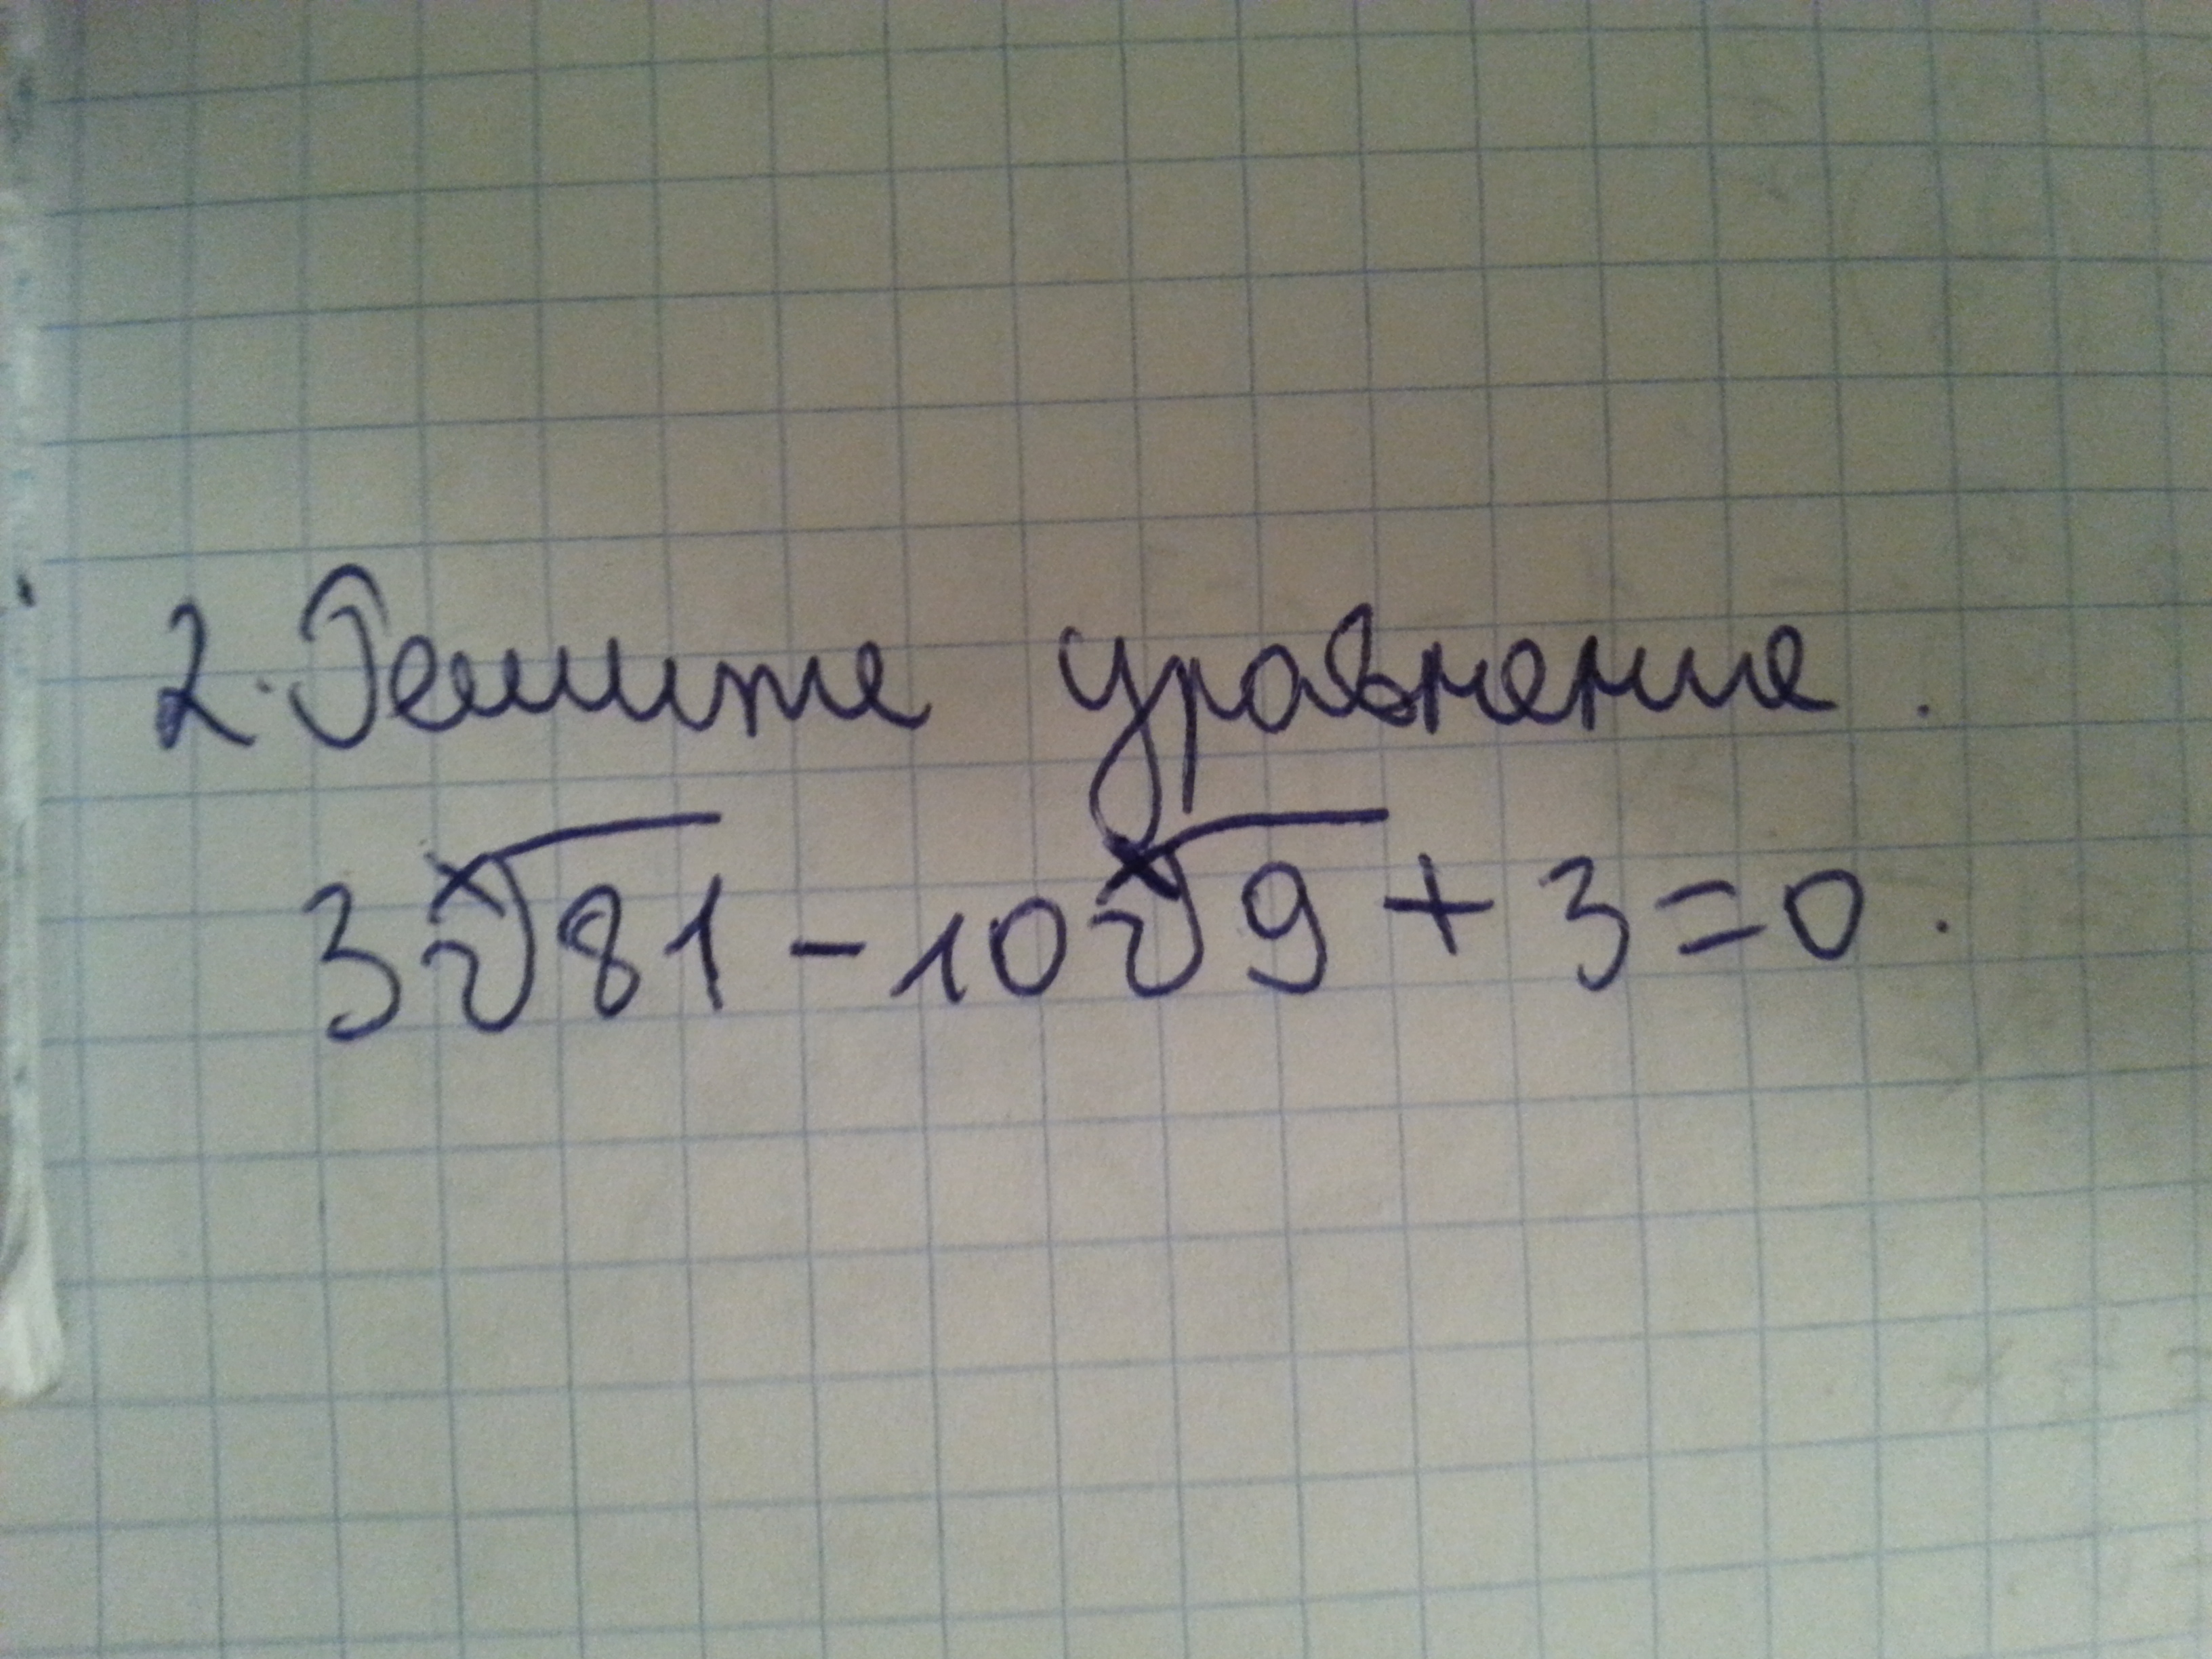 2. Решите уравнение.
3ˣ√81 - 10ˣ√9 + 3 = 0.